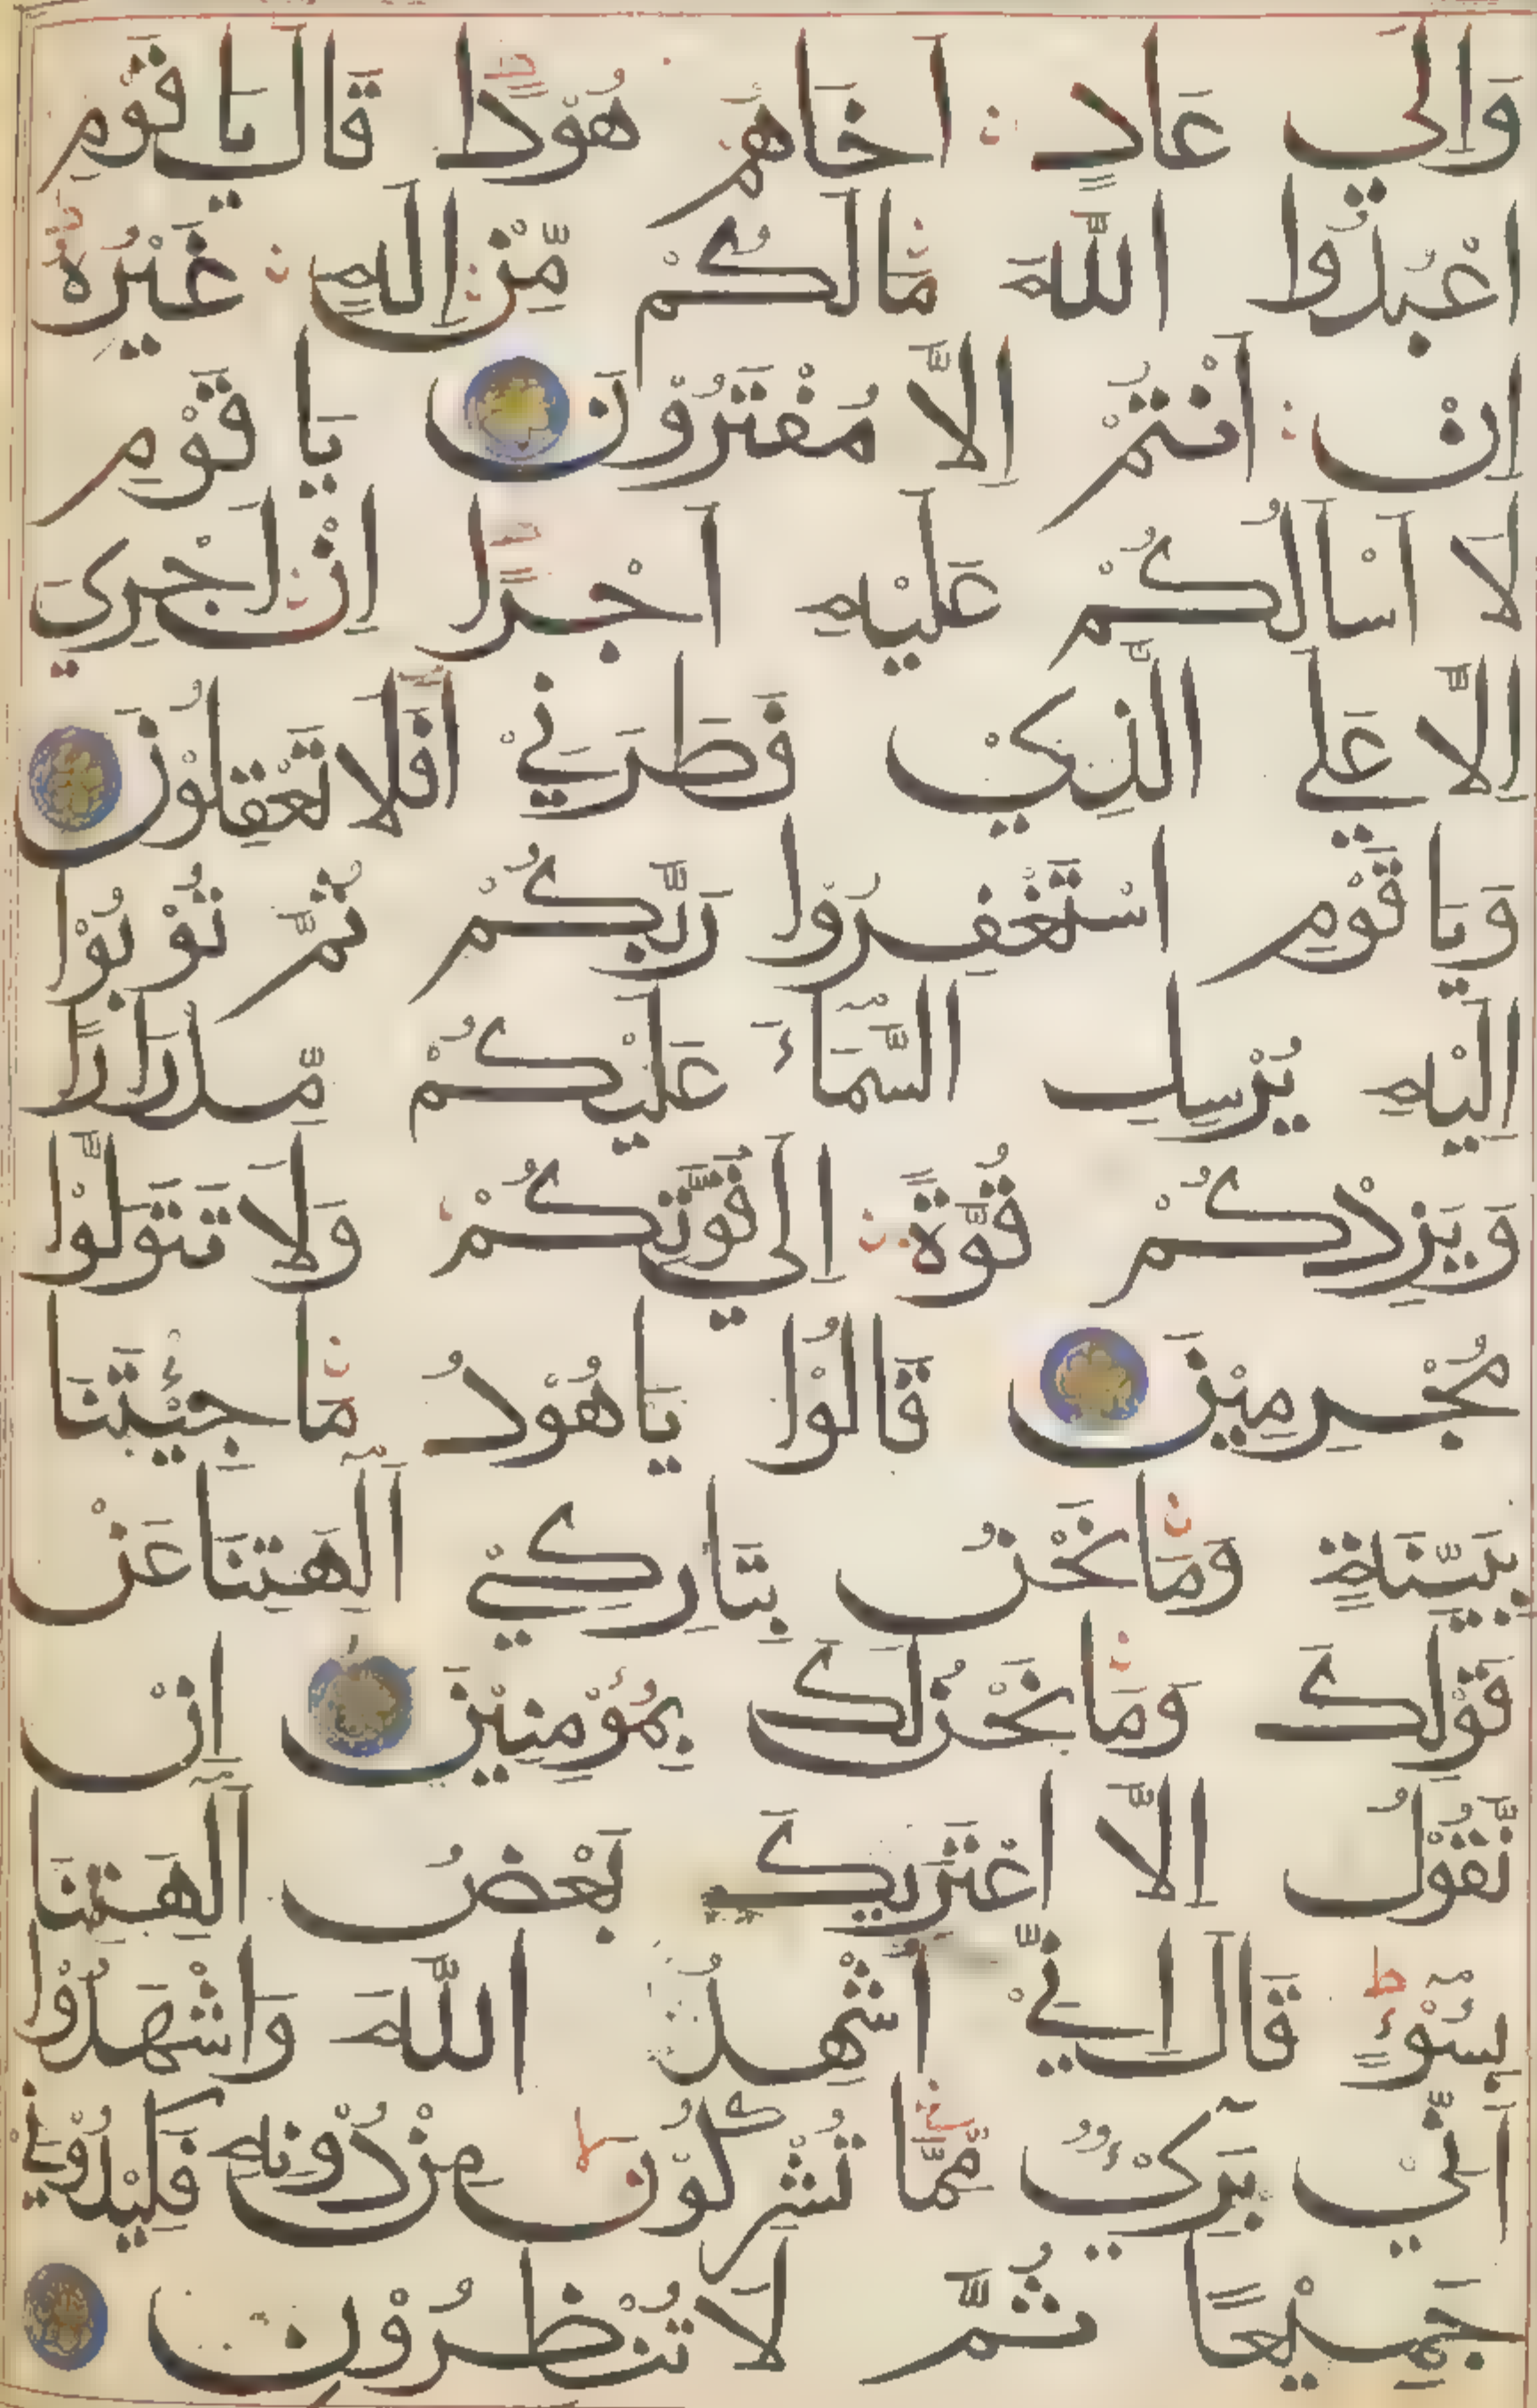 وَاِلٰي عَادٍ اَخَاهُمْ هُوْدًا قَالَ يَا قَوْمِ
اعْبُدُوا اللّٰهَ مَالَكُمْ مِّنْ اِلٰهٍ غَيْرُهُ
اِنْ اَنْتُمْ اِلَّا مُفْتَرُوْنَ يَا قَوْمِ
لَا اَسْاَلُكُمْ عَلَيْهِ اَجْرًا اِنْ اَجْرِيَ
اِلَّا عَلَي الَّذِيْ فَطَرَنِيْ اَفَلَا تَعْقِلُوْنَ
وَيَا قَوْمِ اسْتَغْفِرُوْا رَبَّكُمْ ثُمَّ تُوْبُوْا
اِلَيْهِ يُرْسِلِ السَّمَآءَ عَلَيْكُمْ مِّدْرَارًا
وَيَزِدْكُمْ قُوَّةً اِلٰي قُوَّتِكُمْ وَلَا تَتَوَلَّوْا
مُجْرِمِيْنَ قَالُوْا يَا هُوْدُ مَا جِئْتَنَا
بِبَيِّنَةٍ وَمَا نَحْنُ بِتَارِكِيْ اٰلِهَتِنَا عَنْ
قَوْلِكَ وَمَا نَحْنُ لَكَ بِمُؤْمِنِيْنَ اِنْ
نَّقُوْلُ اِلَّا اعْتَرٰيكَ بَعْضُ اٰلِهَتِنَا
بِسُوْءٍ قَالَ اِنِّيْ اُشْهِدُ اللّٰهَ وَاشْهَدُوْا
اَنِّيْ بَرِيْٓءٌ مِّمَّا تُشْرِكُوْنَ مِنْ دُوْنِهِ فَكِيْدُوْنِيْ
جَمِيْعًا ثُمَّ لَا تُنْظِرُوْنِ